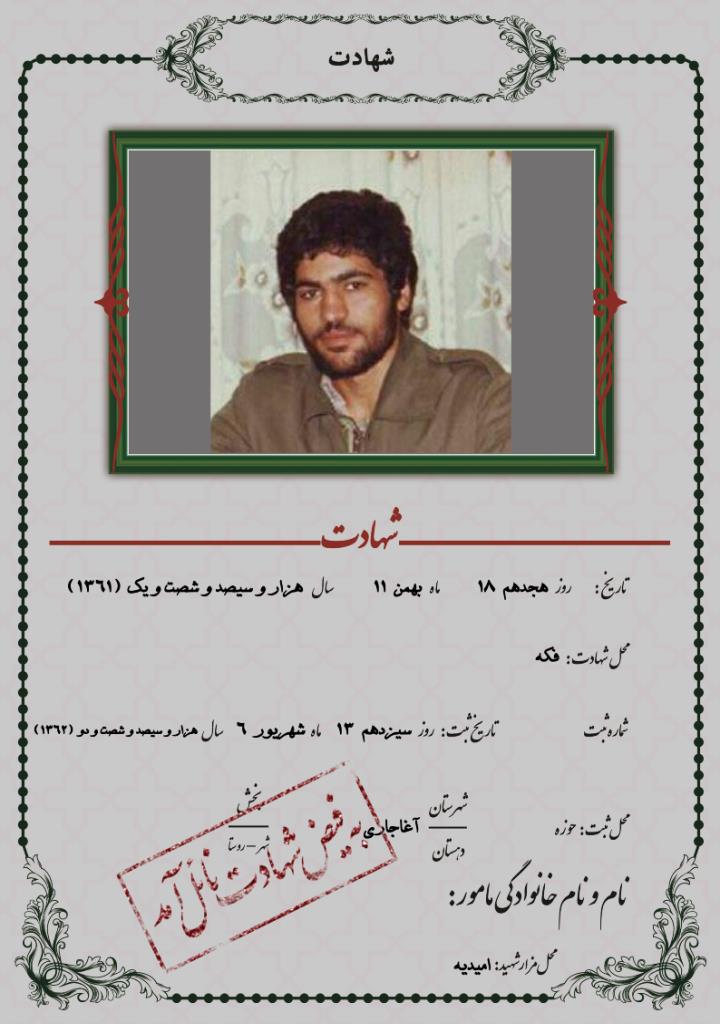 شهادت
شهادت
تاریخ: روز هجدهم ۱۸ ماه بهمن ۱۱ سال هزار و سیصد و شصت و یک (۱۳۶۱)
محل شهادت: فکه
شماره ثبت تاریخ ثبت: روز سیزدهم ۱۳ ماه شهریور ۶ سال هزار و سیصد و شصت و دو (۱۳۶۲)
محل ثبت: حوزه شهرستان آغاجاری بخش
دهستان شهر-روستا
به فیض شهادت نائل آمد
نام و نام خانوادگی مامور:
محل مزار شهید: امیدیه